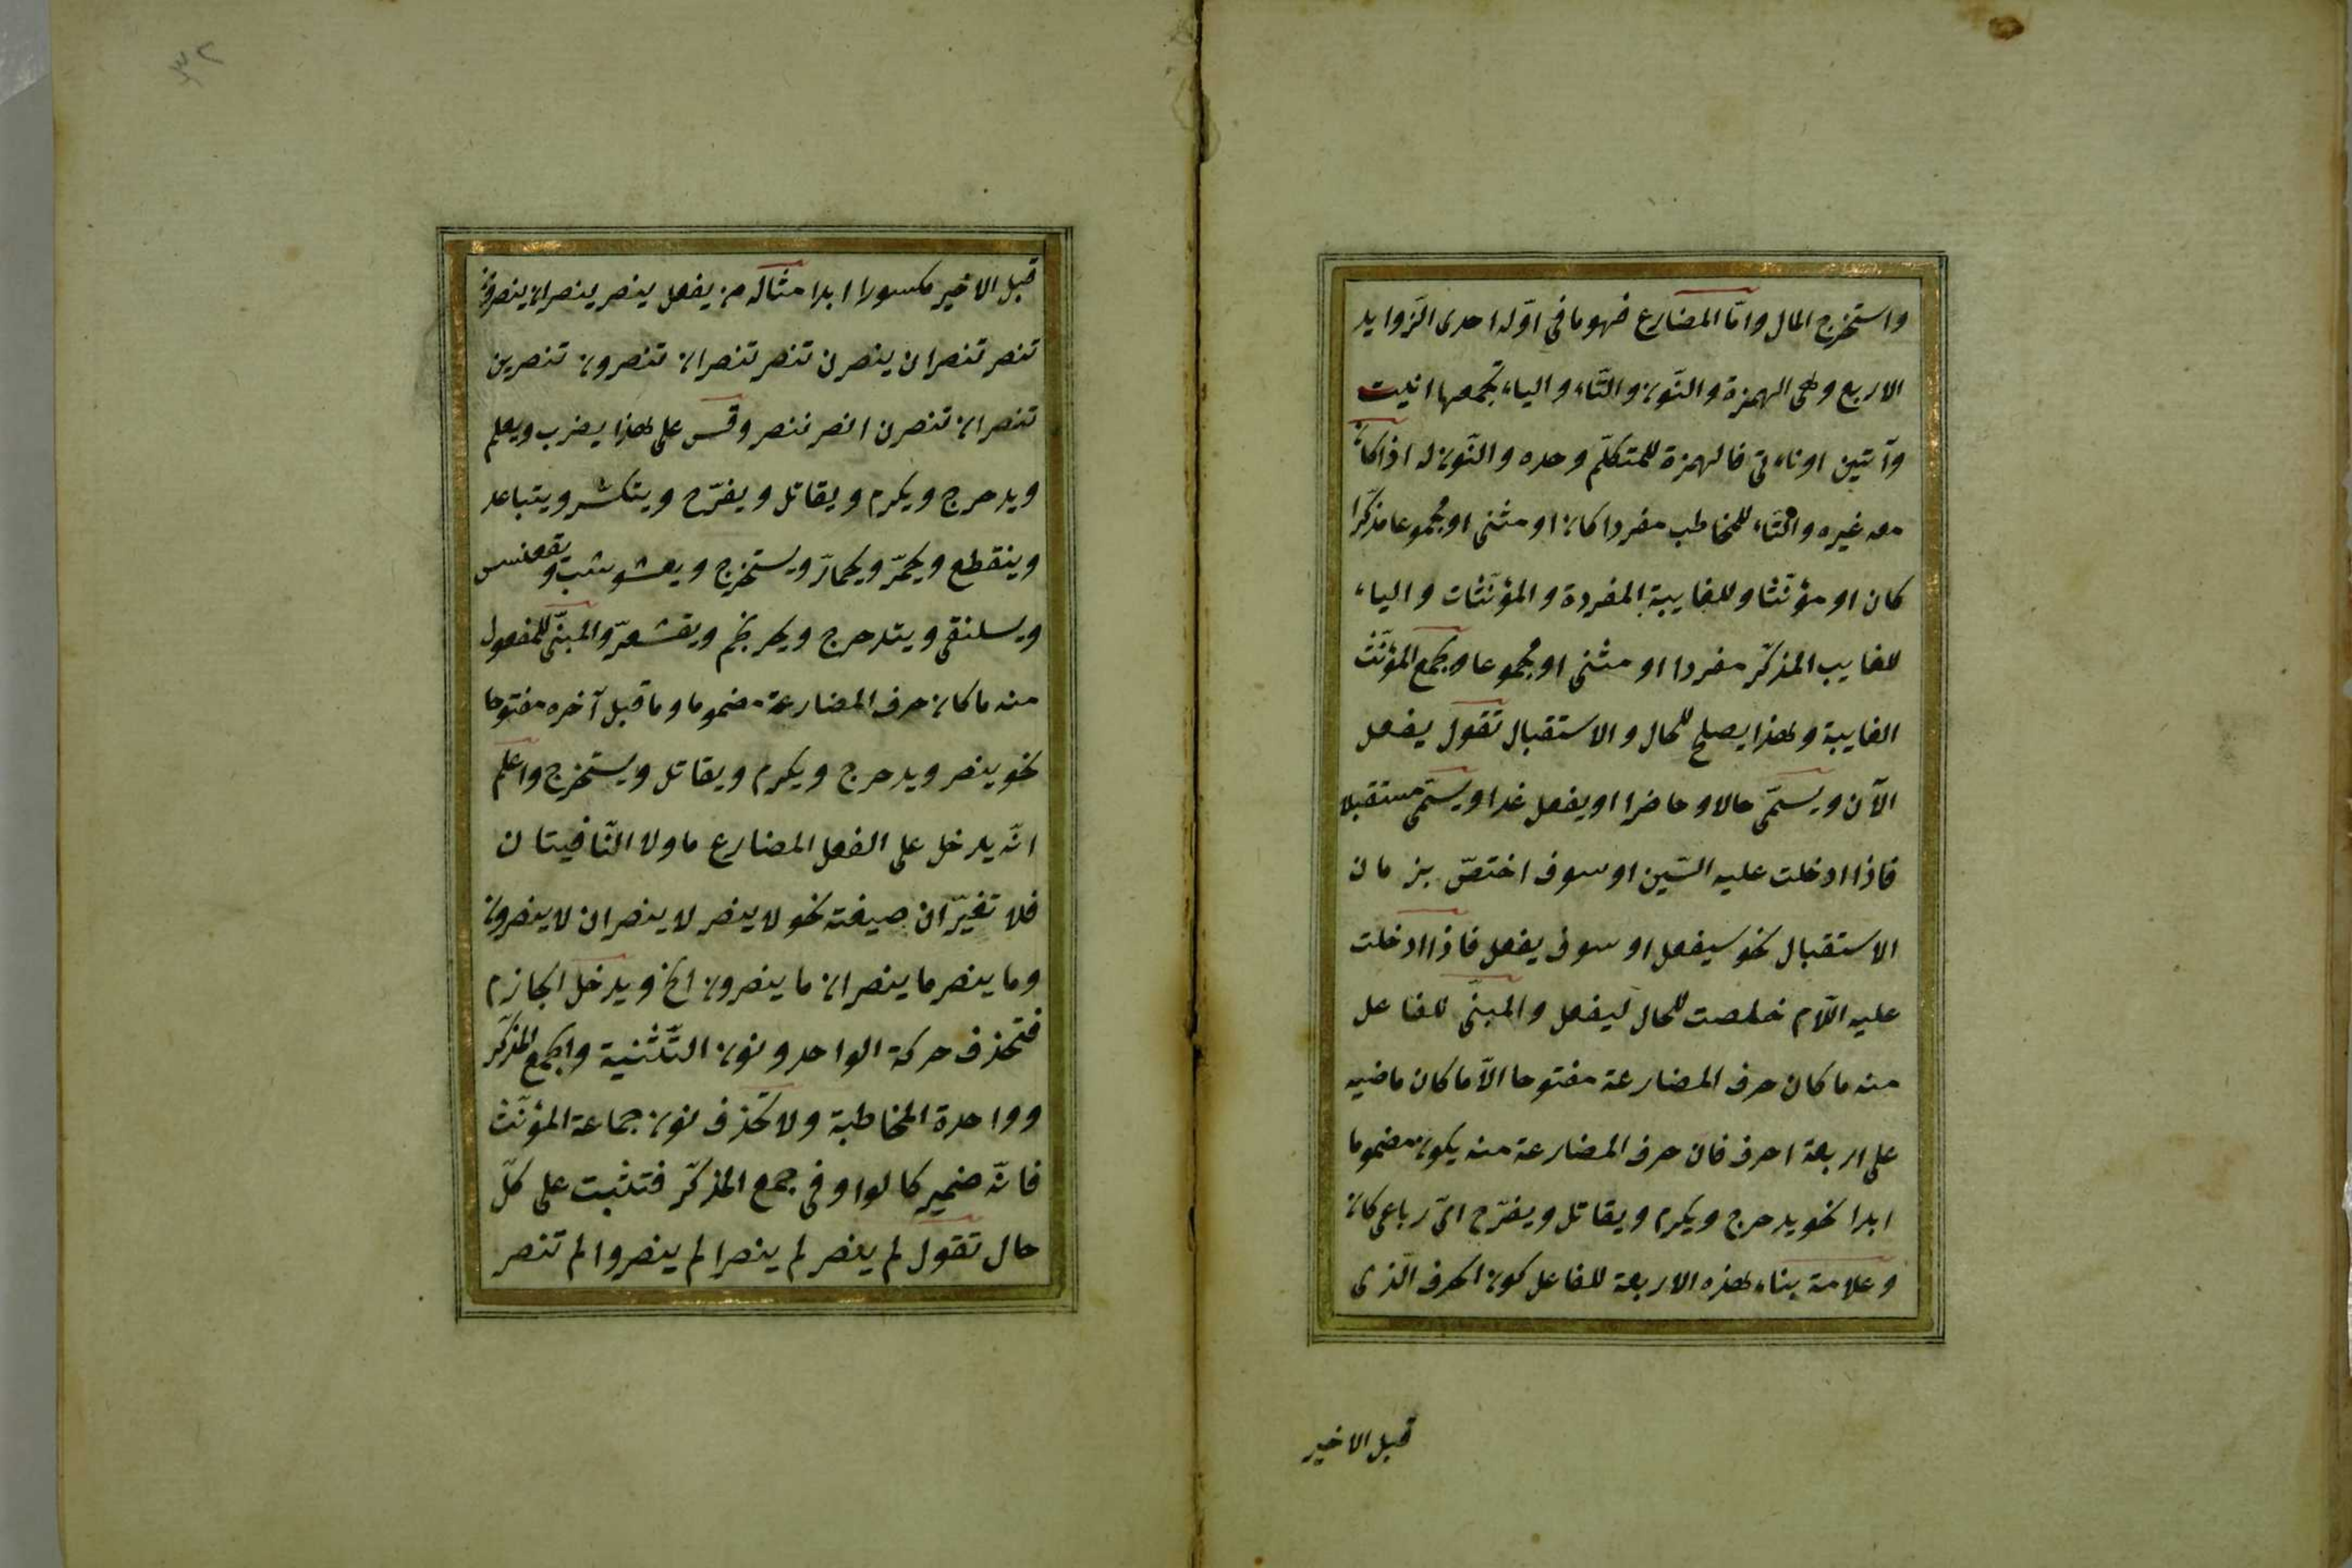 واستخرج المال وامّا المضارع فهو ما فى اوّله احدى الزّوايد
الاربع وهى الهمزة والنّون والتّاء والياء تجمعها انيت
وآتين او ناءتى فالهمزة للمتكلّم وحده والنّون له اذا كان
معه غيره والتّاء للمخاطب مفردا كان او مثنى او مجموعا مذكّرا
كان او مؤنّثا وللغايبة المفردة والمؤنّثات والياء
للغايب المذكّر مفردا او مثنى او مجموعا وجمع المؤنّث
الغايبة وهذا يصلح للحال والاستقبال تقول يفعل
الآن ويسمّى حالا وحاضرا او يفعل غدا ويسمّى مستقبلا
فاذا ادخلت عليه السّين او سوف اختصّ بزمان
الاستقبال نحو سيفعل او سوف يفعل فاذا ادخلت
عليه اللّام خلصت للحال ليفعل والمبنّى للفاعل
منه ما كان حرف المضارعة مفتوحا الّا ما كان ماضيه
على اربعة احرف فان حرف المضارعة منه يكون مضموما
ابدا نحو يدحرج ويكرم ويقاتل ويفرّح اىّ رباعى كان
وعلامة بناء هذه الاربعة للفاعل كون الحرف الّذى
قبل الاخير
قبل الاخير مكسورا ابدا مثاله من يفعل ينصر ينصران ينصرون
تنصر تنصران ينصرن تنصر تنصران تنصرون تنصرين
تنصران تنصرن انصر ننصر وقس على هذا يضرب ويعلم
ويدحرج ويكرم ويقاتل ويفرّح ويتكسّر ويتباعد
وينقطع ويحمرّ ويحمارّ ويستخرج ويعشوشب ويقعنسس
ويسلنقى ويتدحرج ويحرنجم ويقشعرّ والمبنّى للمفعول
منه ما كان حرف المضارعة مضموما وما قبل آخره مفتوحا
نحو ينصر ويدحرج ويكرم ويقاتل ويستخرج واعلم
انّه يدخل على الفعل المضارع ما ولا النّافيتان
فلا تغيّران صيغته نحو لا ينصر لا ينصران لا ينصرون
وما ينصر ما ينصران ما ينصرون الخ ويدخل الجازم
فتحذف حركة الواحد ونون التّثنية والجمع المذكّر
وواحدة المخاطبة ولا تحذف نون جماعة المؤنّث
فانّه ضمير كالواو فى جمع المذكّر فتثبت على كلّ
حال تقول لم ينصر لم ينصرا لم ينصروا لم تنصر